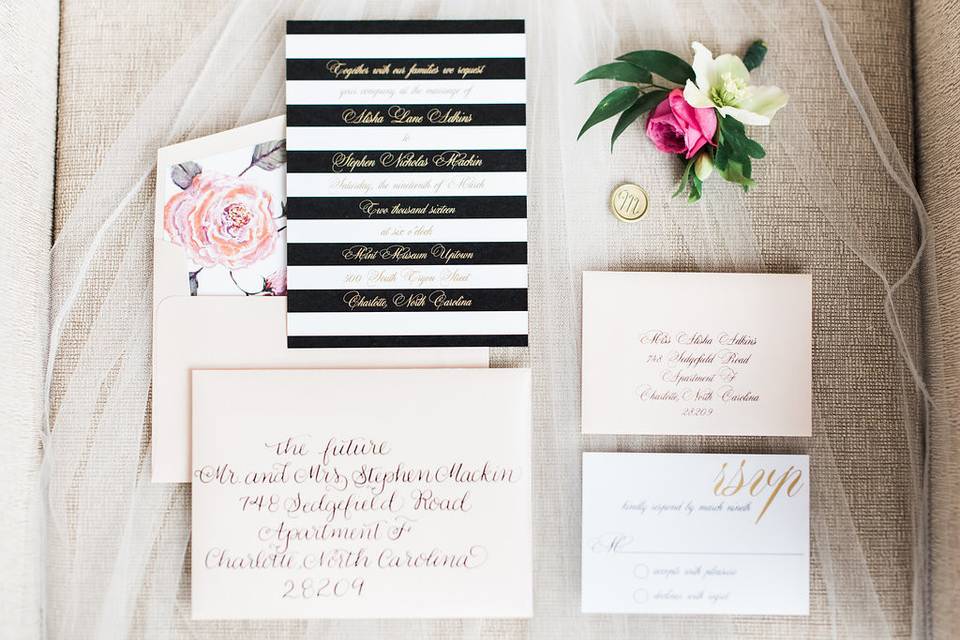 Together with our families we request
your company at the marriage of
Alisha Lane Adkins
&
Stephen Nicholas Mackin
Saturday, the nineteenth of March
Two thousand sixteen
at six o'clock
Mint Museum Uptown
500 South Tryon Street
Charlotte, North Carolina
M
Miss Alisha Adkins
748 Sedgefield Road
Apartment F
Charlotte, North Carolina
28209
the future
Mr. and Mrs. Stephen Mackin
748 Sedgefield Road
Apartment F
Charlotte, North Carolina
28209
rsvp
kindly respond by march nineth
M
accepts with pleasure
declines with regret